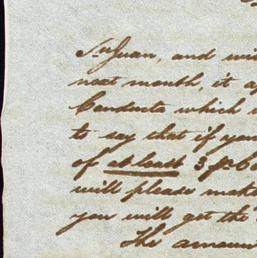 Sn Juan, and wi
next month, it a
Conducts which
to say that if you
of at least 3 p. C
will please mak
you will get the
The amoun